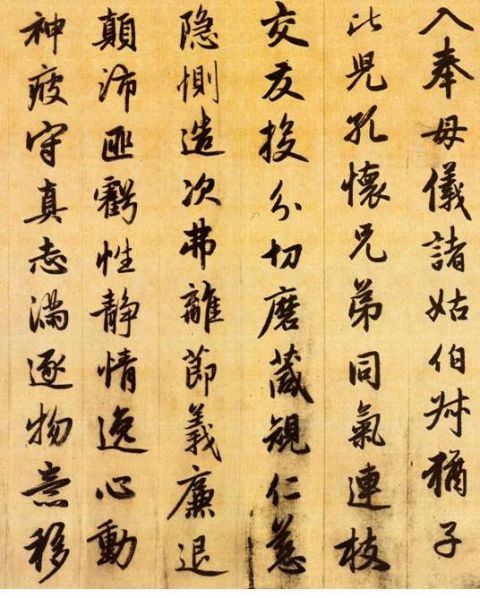 入奉母儀諸姑伯叔猶子
比兒孔懷兄弟同氣連枝
交友投分切磨箴規仁慈
隐惻造次弗離節義廉退
顛沛匪虧性静情逸心動
神疲守真志滿逐物意移